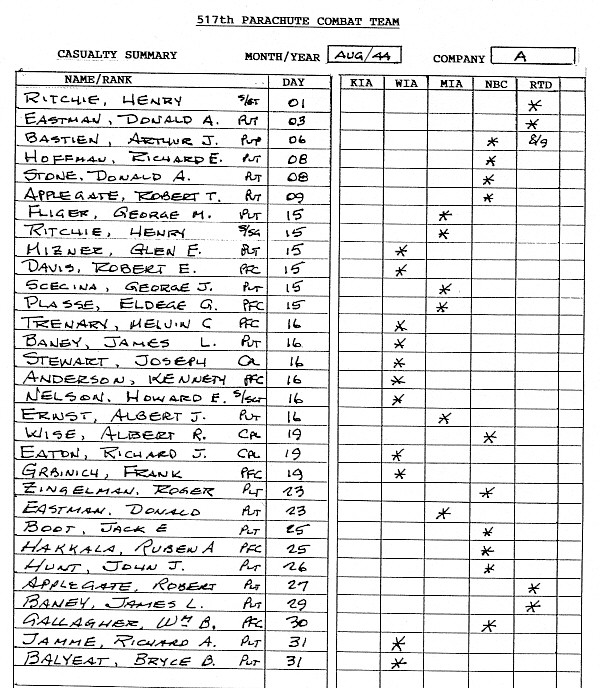 517th PARACHUTE COMBAT TEAM
CASUALTY SUMMARY MONTH/YEAR AUG/44 COMPANY A
NAME/RANK DAY KIA WIA MIA NBC RTD
RITCHIE, HENRY S/GT 01 *
EASTMAN, DONALD A. PVT 03 *
BASTIEN, ARTHUR J. PVT 06 * 8/9
HOFFMAN, RICHARD E. PVT 08 *
STONE, DONALD A. PVT 08 *
APPLEGATE, ROBERT T. PVT 09 *
FLIGER, GEORGE M. PVT 15 *
RITCHIE, HENRY S/SG 15 *
MIZNER, GLEN E. PVT 15 *
DAVIS, ROBERT E. PFC 15 *
SCECINA, GEORGE J. PVT 15 *
PLASSE, ELDEGE G. PFC 15 *
TRENARY, MELVIN C PFC 16 *
BANEY, JAMES L. PVT 16 *
STEWART, JOSEPH CPL 16 *
ANDERSON, KENNETH PFC 16 *
NELSON, HOWARD E. S/SGT 16 *
ERNST, ALBERT J. PVT 16 *
WISE, ALBERT R. CPL 19 *
EATON, RICHARD J. CPL 19 *
GRBINICH, FRANK PFC 19 *
ZINGELMAN, ROGER PVT 23 *
EASTMAN, DONALD PVT 23 *
BOOT, JACK E PVT 25 *
HAKKALA, RUBEN A PFC 25 *
HUNT, JOHN J. PVT 26 *
APPLEGATE, ROBERT PVT 27 *
BANEY, JAMES L. PVT 29 *
GALLAGHER, WM B, PFC 30 *
JAMME, RICHARD A. PVT 31 *
BALYEAT, BRYCE B. PVT 31 *